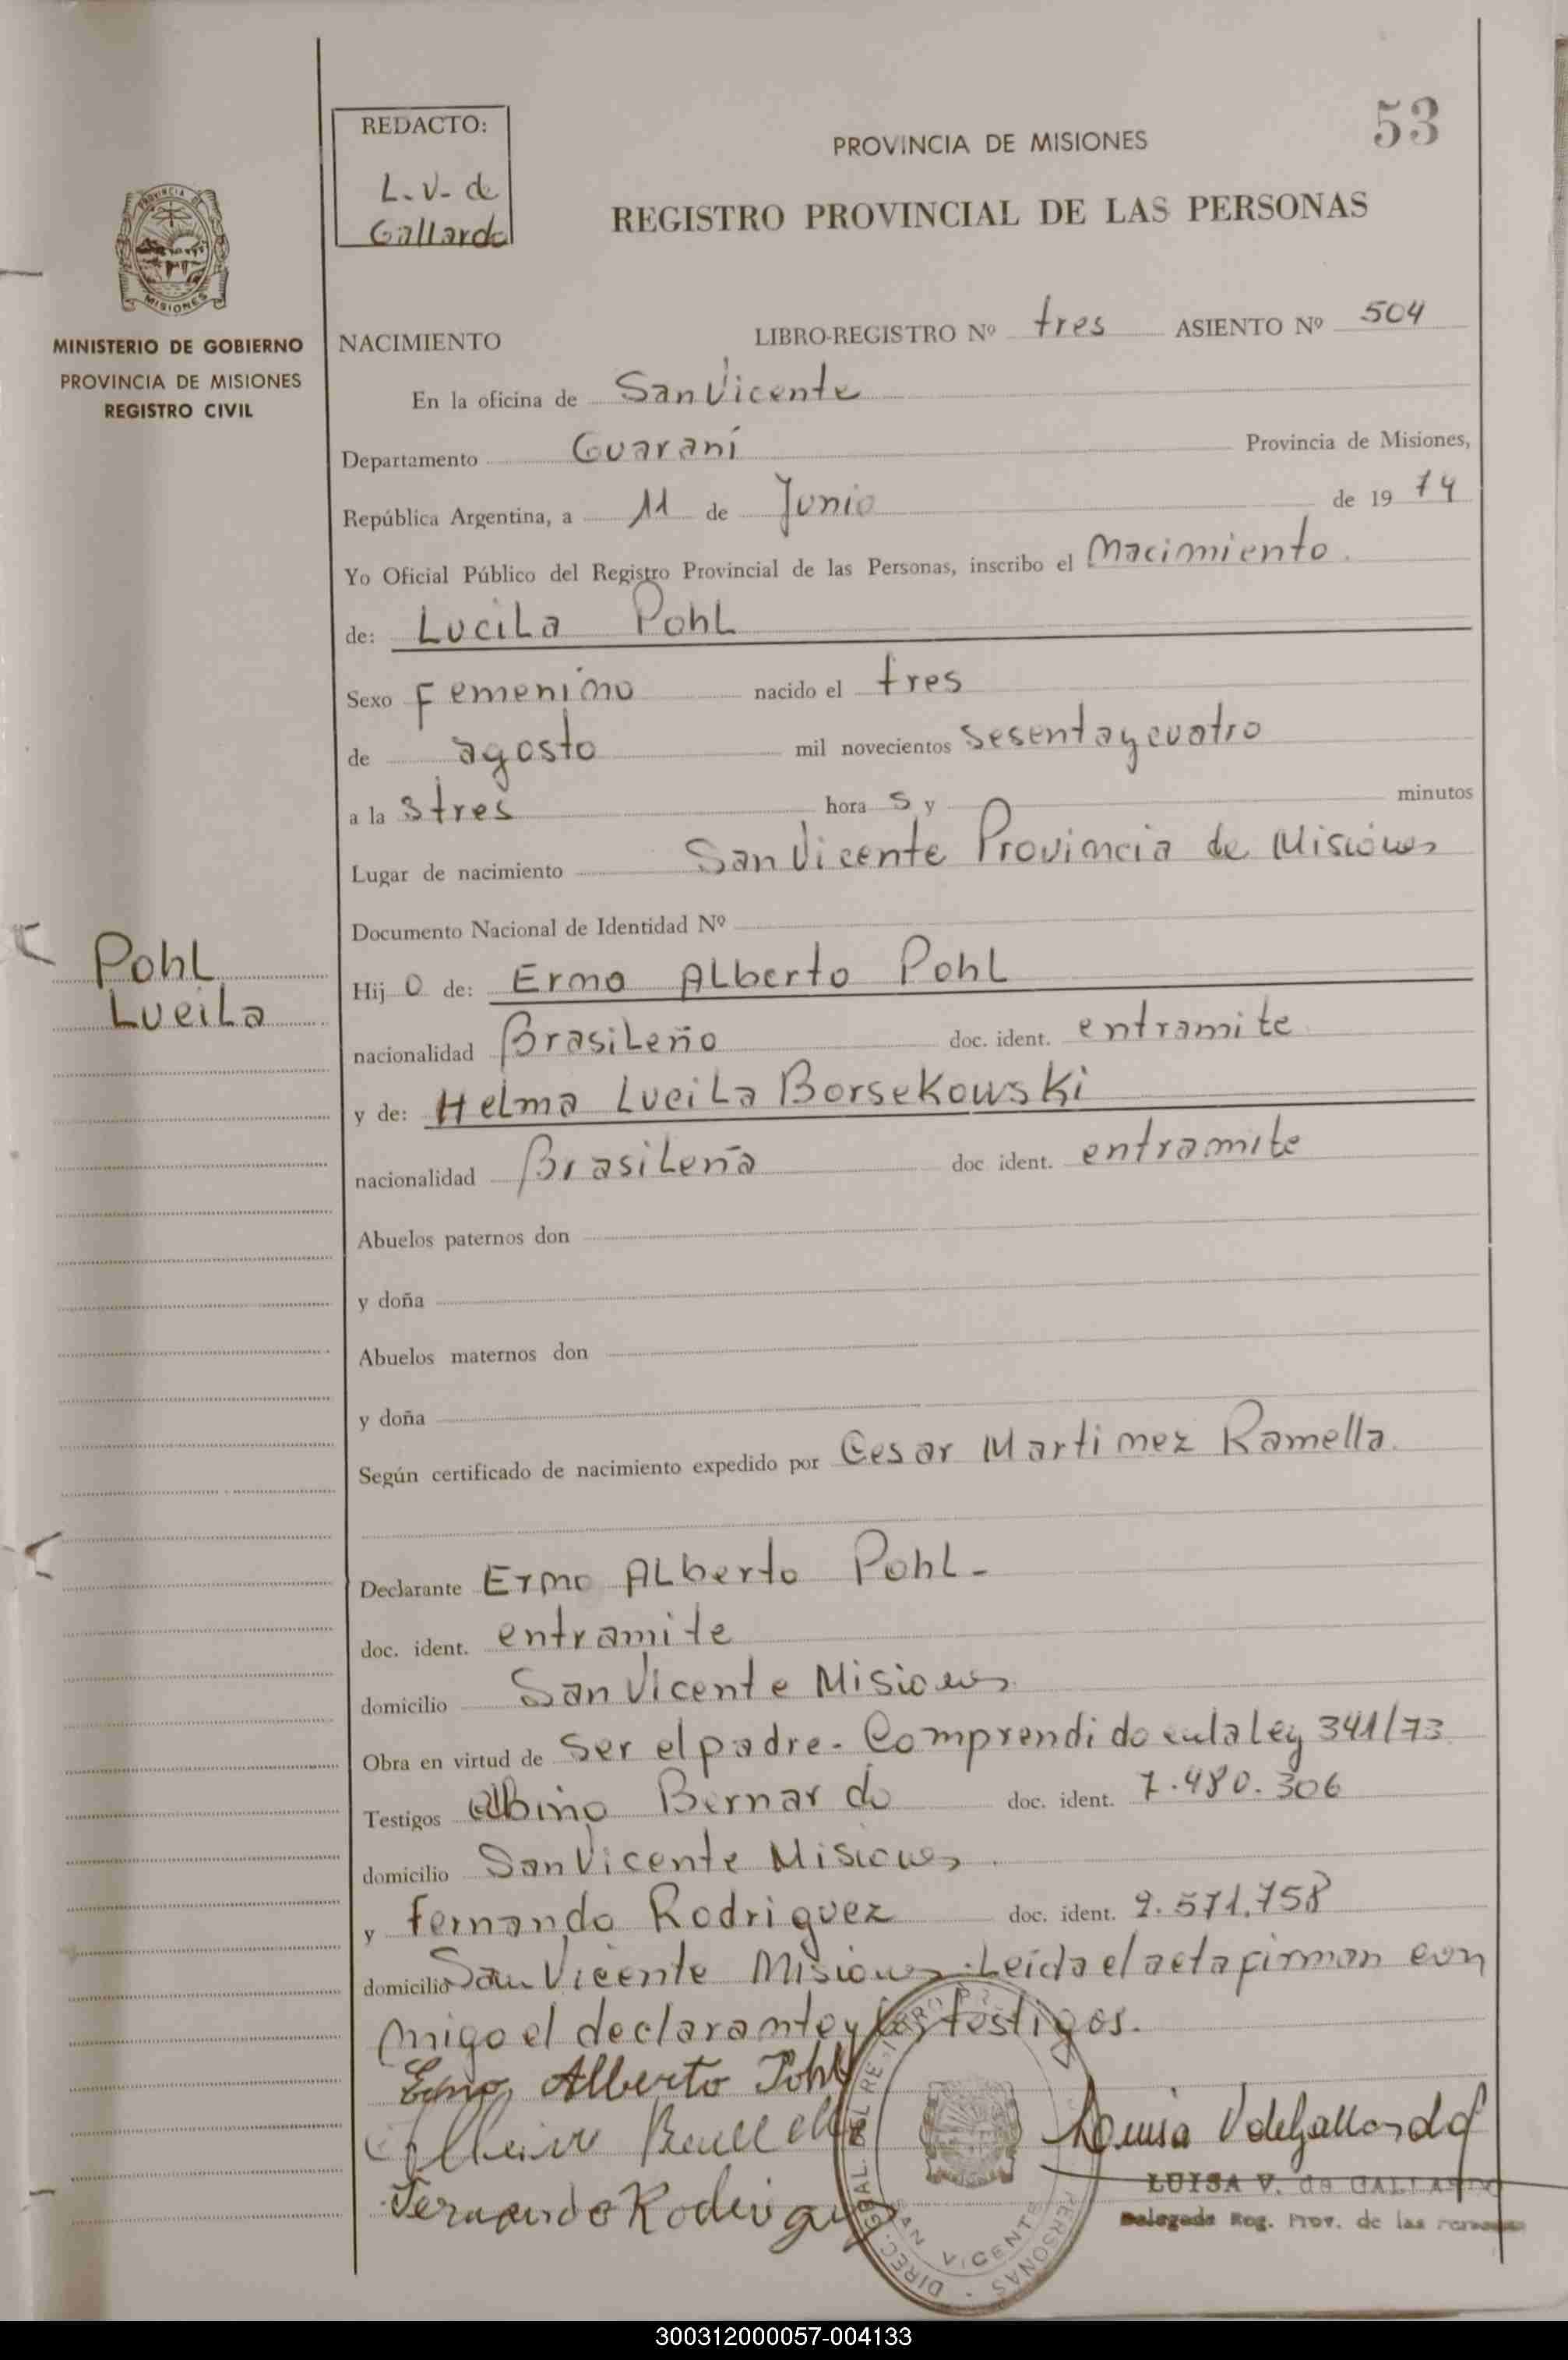 53
REDACTO:
L.V. de
Gallardo
PROVINCIA DE MISIONES
REGISTRO PROVINCIAL DE LAS PERSONAS
PROVINCIA DE
MISIONES
MINISTERIO DE GOBIERNO
PROVINCIA DE MISIONES
REGISTRO CIVIL
NACIMIENTO LIBRO-REGISTRO Nº tres ASIENTO Nº 504
En la oficina de San Vicente
Departamento Guaraní Provincia de Misiones,
República Argentina, a 11 de Junio de 19 74
Yo Oficial Público del Registro Provincial de las Personas, inscribo el Nacimiento.
de: Lucila Pohl
Sexo Femenino nacido el tres
de agosto mil novecientos sesenta y cuatro
a la s tres hora s y minutos
Lugar de nacimiento San Vicente Provincia de Misiones
Documento Nacional de Identidad Nº
Pohl
Lucila
Hij o de: Ermo Alberto Pohl
nacionalidad Brasileño doc. ident. entramite
y de: Helma Lucila Borsekowski
nacionalidad Brasileña doc ident. entramite
Abuelos paternos don
y doña
Abuelos maternos don
y doña
Según certificado de nacimiento expedido por Cesar Martinez Ramella.
Declarante Ermo Alberto Pohl-
doc. ident. entramite
domicilio San Vicente Misiones
Obra en virtud de ser el padre- Comprendido en la ley 341/73
Testigos Albino Bernardo doc. ident. 7.480.306
domicilio San Vicente Misiones.
y Fernando Rodriguez doc. ident. 2.571.758
domicilio San Vicente Misiones. Leida el acta firman con
migo el declarante y los testigos.
Ermo Alberto Pohl
Fernando Rodriguez
Luisa V de Gallardo
LUISA V. de GALLARDO
Delegada Reg. Prov. de las Personas
SAN VICENTE
300312000057-004133